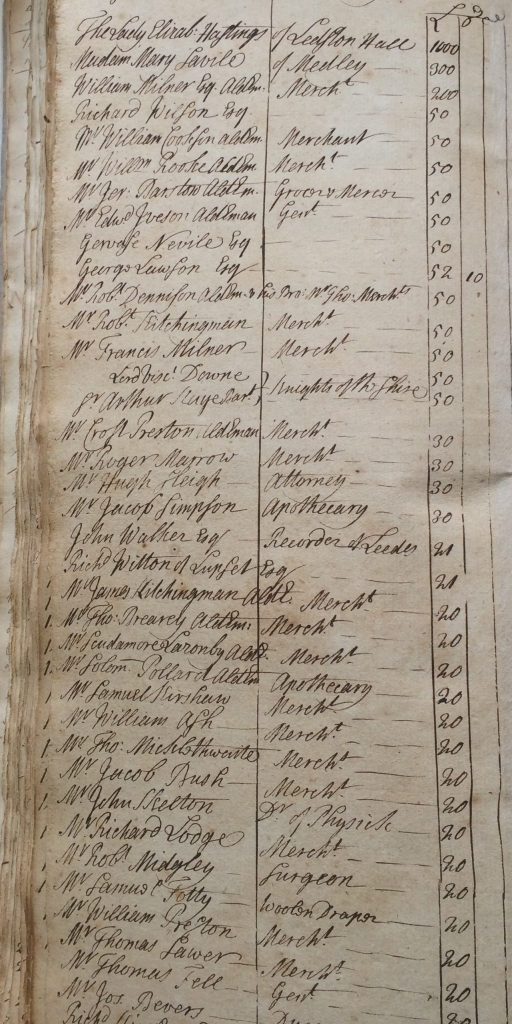 £ s d
The Lady Elizab: Hastings of Ledston Hall 1000
Madam Mary Savile of Medley 300
William Milner Esq. Aldem. Mercht 200
Richard Wilson Esq 50
Mr William Cookson Aldem. Merchant 50
Mr Willm Rooke Aldem. Mercht 50
Mr Jer: Barstow Aldem. Grocer & Mercer 50
Mr Edwd Iveson Aldeman Gent 50
Gervase Nevile Esq 50
George Lawson Esq 52 10
Mr Robt Dennison Aldem. & his Bro: Mr Tho: Merchts 50
Mr Robt Kitchingman Mercht 50
Mr Francis Milner Mercht 50
Lord Visct Downe 50
Sr Arthur Kaye Bart Knights of the Shire 50
Mr Croft Preston, Aldeman Mercht 30
Mr Roger Marrow Mercht 30
Mr Hugh Sleigh Attorney 30
Mr Jacob Simpson Apothecary 30
John Walker Esq Recorder of Leedes 21
Richd Witton of Lupset Esq 21
1 Mr James Kitchingman Ald. Mercht 20
1. Mr Tho: Brearey Aldem: Mercht 20
1. Mr Scudamore Lazonby Ald. Mercht 20
1. Mr Solom. Pollard Aldem Apothecary 20
1 Mr Samuel Kirshaw Mercht 20
1 Mr William Ash Mercht 20
1 Mr Tho: Micklethwaite Mercht 20
1. Mr Jacob Bush Mercht 20
1. Mr John Skelton Dr of Physick 20
1 Mr Richard Lodge Mercht 20
1 Mr Robt Midgley Surgeon 20
1 Mr Samuel Totty Woolen Draper 20
Mr William Preston Mercht 20
Mr Thomas Lawer Mercht 20
Mr Thomas Fell Gent 20
Mr Jos. Bevers
Richd